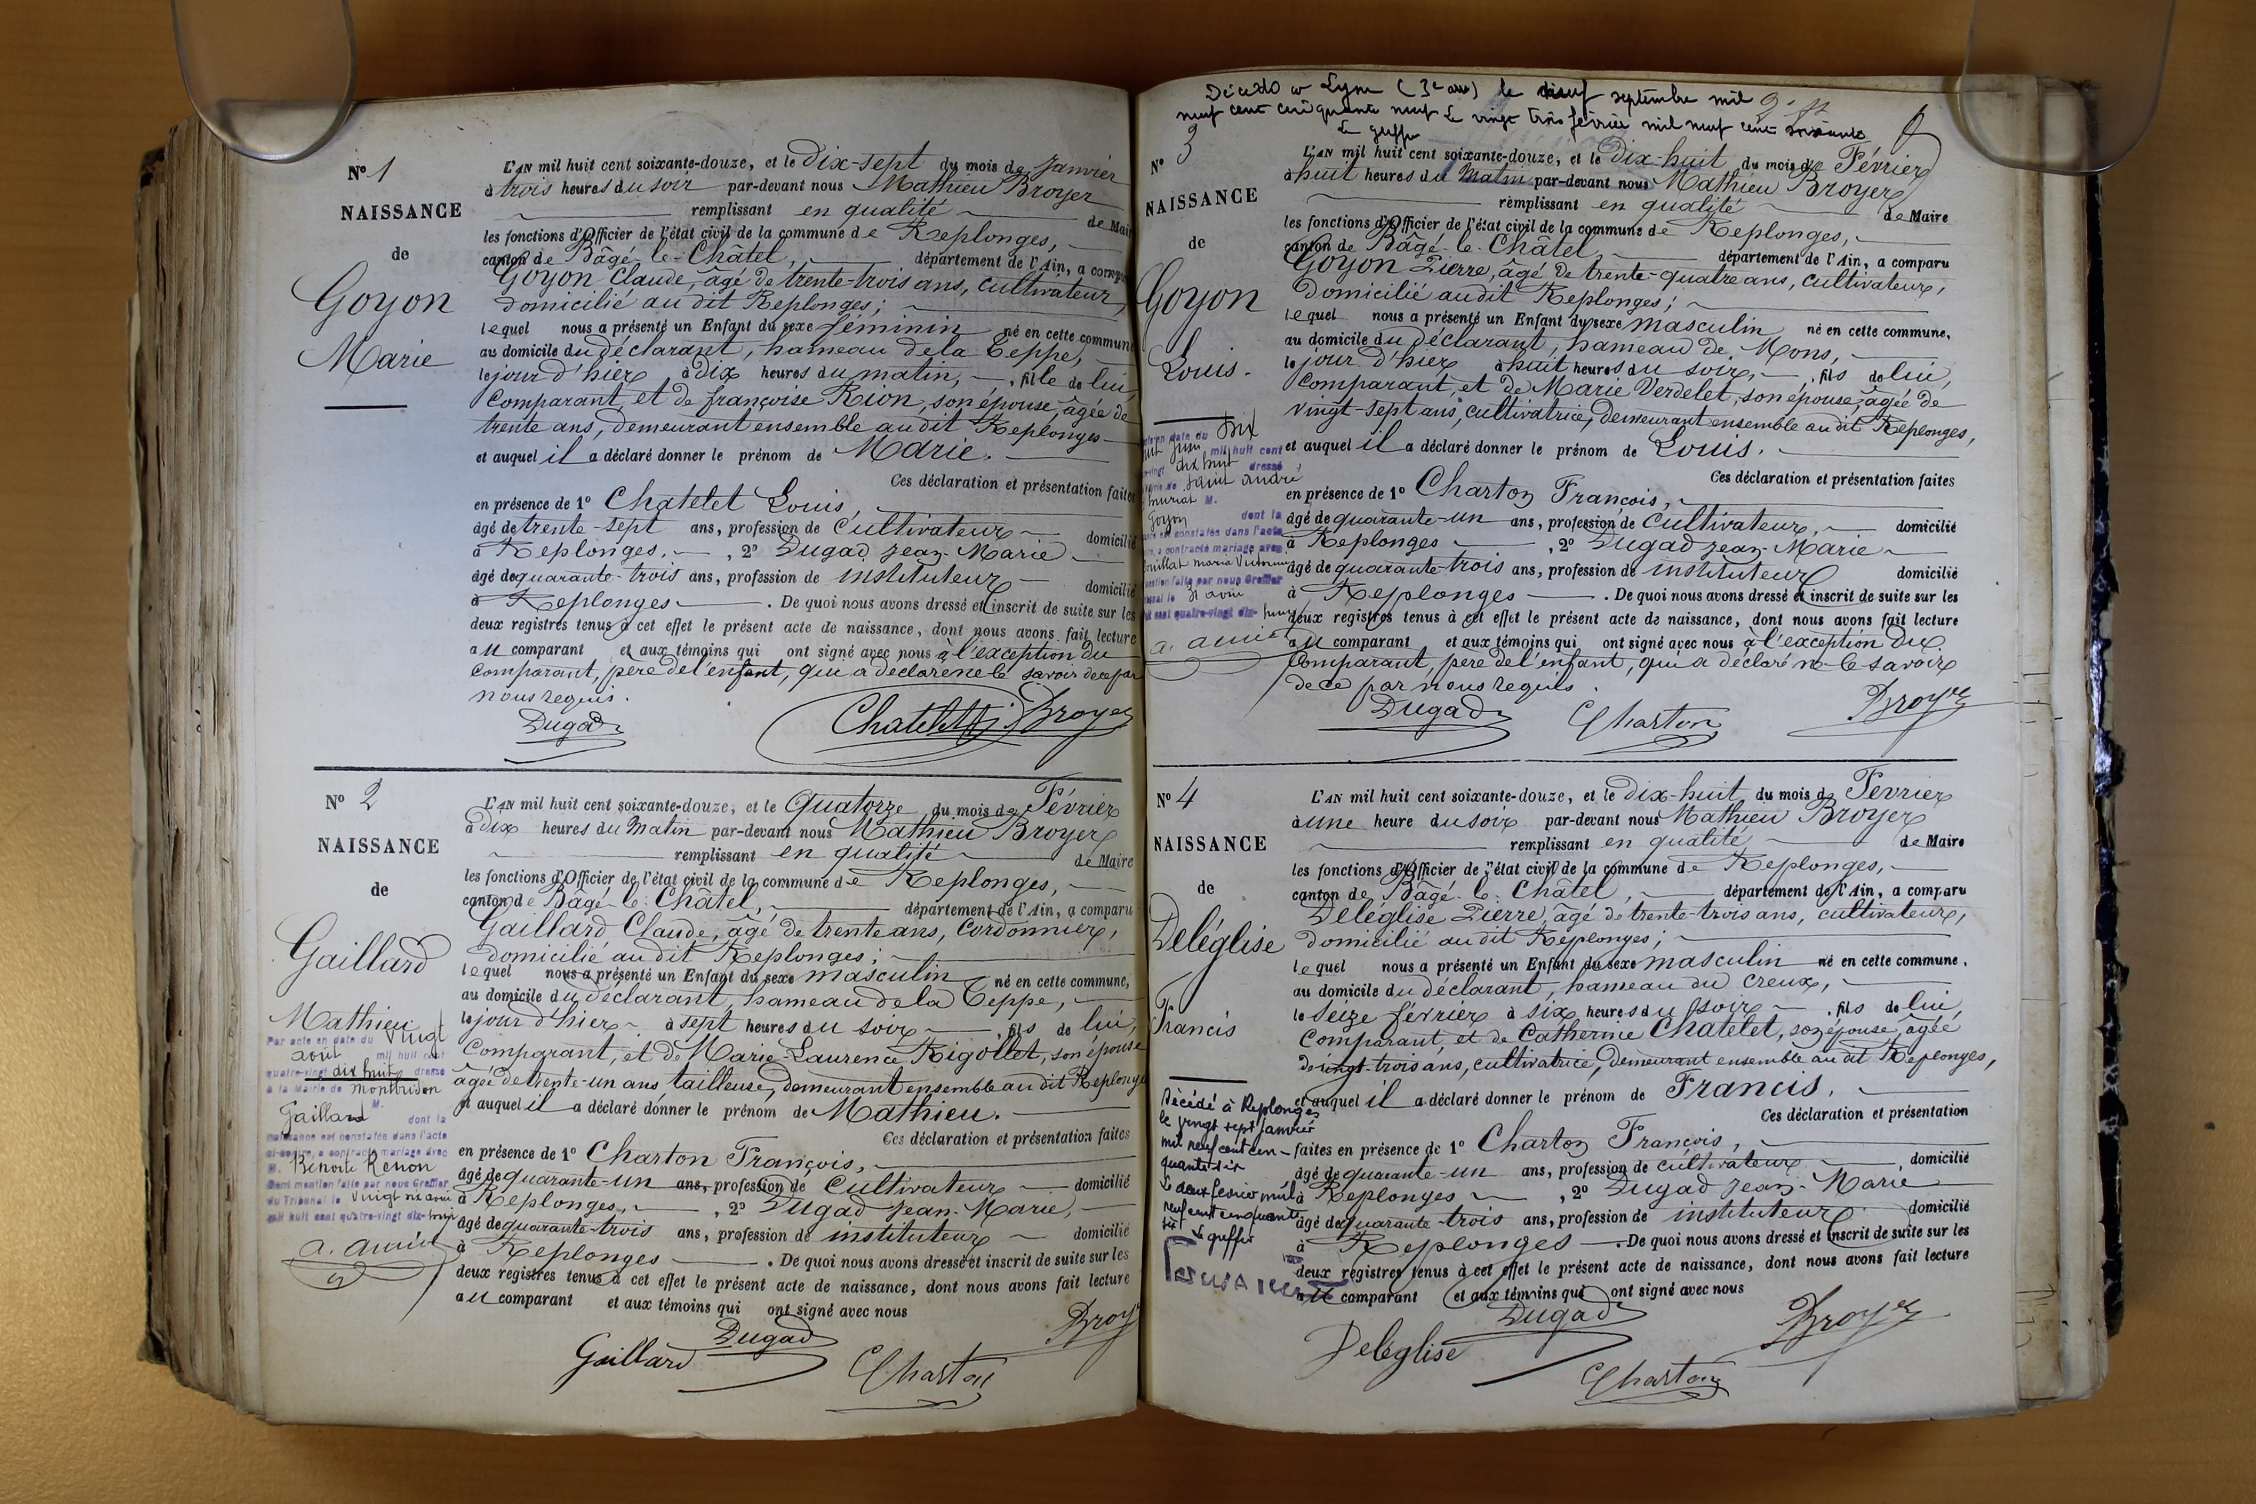 N° 1
NAISSANCE
de
Goyon
Marie
L'AN mil huit cent soixante-douze, et le dix-sept du mois de Janvier
à trois heures du soir par-devant nous Mathieu Broyer
remplissant en qualité de Mair
les fonctions d'Officier de l'état civil de la commune de Replonges,
canton de Bâgé-le-Châtel, département de l'Ain, a compa
Goyon Claude, âgé de trente-trois ans, cultivateur,
domicilié au dit Replonges;
lequel nous a présenté un Enfant du sexe féminin né en cette commune
au domicile du déclarant, hameau de la Teppe,
le jour d'hier à dix heures du matin, fille de lui,
comparant, et de françoise Rion, son épouse, âgée de
trente ans, demeurant ensemble au dit Replonges
et auquel il a déclaré donner le prénom de Marie.
Ces déclaration et présentation faites
en présence de 1° Chatelet Louis,
âgé de trente-sept ans, profession de cultivateur domicilié
à Replonges, 2° Dugad Jean-Marie
âgé de quarante-trois ans, profession de instituteur domicilié
à Replonges. De quoi nous avons dressé et inscrit de suite sur les
deux registres tenus à cet effet le présent acte de naissance, dont nous avons fait lecture
au comparant et aux témoins qui ont signé avec nous à l'exception du
comparant, père de l'enfant, qui a déclaré ne le savoir de ce par
nous requis.
Dugad Chatelet Broyer
N° 2
NAISSANCE
de
Gaillard
Mathieu
Par acte en date du vingt
août mil huit cent
quatre-vingt dix huit dressé
à la Mairie de
M.
Gaillard dont la
naissance est constatée dans l'acte
ci-contre, a contracté mariage avec
M. Benoite Renon
Dont mention faite par nous Greffier
du Tribunal le vingt
mil huit cent quatre-vingt dix-huit
L'AN mil huit cent soixante-douze, et le quatorze du mois de Février
à dix heures du Matin par-devant nous Mathieu Broyer
remplissant en qualité de Maire
les fonctions d'Officier de l'état civil de la commune de Replonges,
canton de Bâgé-le-Châtel, département de l'Ain, a comparu
Gaillard Claude, âgé de trente ans, cordonnier,
domicilié au dit Replonges;
lequel nous a présenté un Enfant du sexe masculin né en cette commune,
au domicile du déclarant, hameau de la Teppe,
le jour d'hier à sept heures du soir, fils de lui,
comparant, et de Marie-Laurence Rigollet, son épouse
âgée de trente-un ans tailleuse, demeurant ensemble au dit Replonges
et auquel il a déclaré donner le prénom de Mathieu.
Ces déclaration et présentation faites
en présence de 1° Charton François,
âgé de quarante-un ans, profession de cultivateur domicilié
à Replonges, 2° Dugad Jean-Marie,
âgé de quarante-trois ans, profession de instituteur domicilié
à Replonges. De quoi nous avons dressé et inscrit de suite sur les
deux registres tenus à cet effet le présent acte de naissance, dont nous avons fait lecture
au comparant et aux témoins qui ont signé avec nous
Gaillard Dugad Charton Broyer
Décédé à Lyon (3e arr) le neuf septembre mil
neuf cent cinquante neuf Le vingt trois février mil neuf cent soixante
Le greffier
N° 3
NAISSANCE
de
Goyon
Louis.
en date du dix
huit Juin mil huit cent
vingt dix huit dressé
Saint André
M.
Goyon dont la
constatée dans l'acte
a contracté mariage avec
mention faite par nous Greffier
cent quatre-vingt dix-huit
L'AN mil huit cent soixante-douze, et le dix-huit du mois de Février
à huit heures du Matin par-devant nous Mathieu Broyer
remplissant en qualité de Maire
les fonctions d'Officier de l'état civil de la commune de Replonges,
canton de Bâgé-le-Châtel, département de l'Ain, a comparu
Goyon Pierre, âgé de trente-quatre ans, cultivateur,
domicilié au dit Replonges;
lequel nous a présenté un Enfant du sexe masculin né en cette commune,
au domicile du déclarant, hameau de Mons,
le jour d'hier à huit heures du soir, fils de lui,
comparant, et de Marie Verdelet, son épouse, âgée de
vingt-sept ans, cultivatrice, demeurant ensemble au dit Replonges,
et auquel il a déclaré donner le prénom de Louis.
Ces déclaration et présentation faites
en présence de 1° Charton François,
âgé de quarante-un ans, profession de cultivateur, domicilié
à Replonges, 2° Dugad Jean-Marie
âgé de quarante-trois ans, profession de instituteur domicilié
à Replonges. De quoi nous avons dressé et inscrit de suite sur les
deux registres tenus à cet effet le présent acte de naissance, dont nous avons fait lecture
au comparant et aux témoins qui ont signé avec nous à l'exception du
comparant, père de l'enfant, qui a déclaré ne le savoir
de ce par nous requis.
Dugad Charton Broyer
N° 4
NAISSANCE
de
Deléglise
Francis
Décédé à Replonges
le vingt sept janvier
mil neuf cent cin-
quante six
Le deux février mil
neuf cent cinquante
six
Le greffier
L'AN mil huit cent soixante-douze, et le dix-huit du mois de Février
à une heure du soir par-devant nous Mathieu Broyer
remplissant en qualité de Maire
les fonctions d'Officier de l'état civil de la commune de Replonges,
canton de Bâgé-le-Châtel, département de l'Ain, a comparu
Deléglise Pierre, âgé de trente-trois ans, cultivateur,
domicilié au dit Replonges;
lequel nous a présenté un Enfant du sexe masculin né en cette commune,
au domicile du déclarant, hameau du Creux,
le seize février à six heures du soir fils de lui,
comparant, et de Catherine Chatelet, son épouse, âgée
de vingt-trois ans, cultivatrice, demeurant ensemble au dit Replonges,
et auquel il a déclaré donner le prénom de Francis.
Ces déclaration et présentation
faites en présence de 1° Charton François,
âgé de quarante-un ans, profession de cultivateur, domicilié
à Replonges, 2° Dugad Jean-Marie
âgé de quarante-trois ans, profession de instituteur domicilié
à Replonges. De quoi nous avons dressé et inscrit de suite sur les
deux registres tenus à cet effet le présent acte de naissance, dont nous avons fait lecture
au comparant et aux témoins qui ont signé avec nous
Deléglise Dugad Charton Broyer